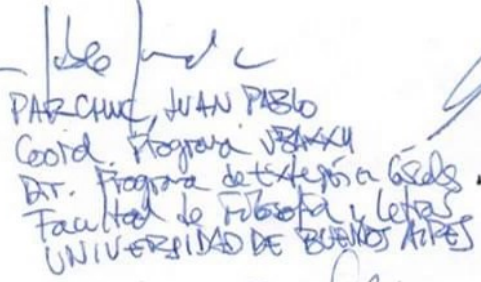 PARCHUC, JUAN PABLO
Coord. Programa UBAXXII
Dir. Programa de Extensión en Cárceles.
Facultad de Filosofía y Letras
UNIVERSIDAD DE BUENOS AIRES